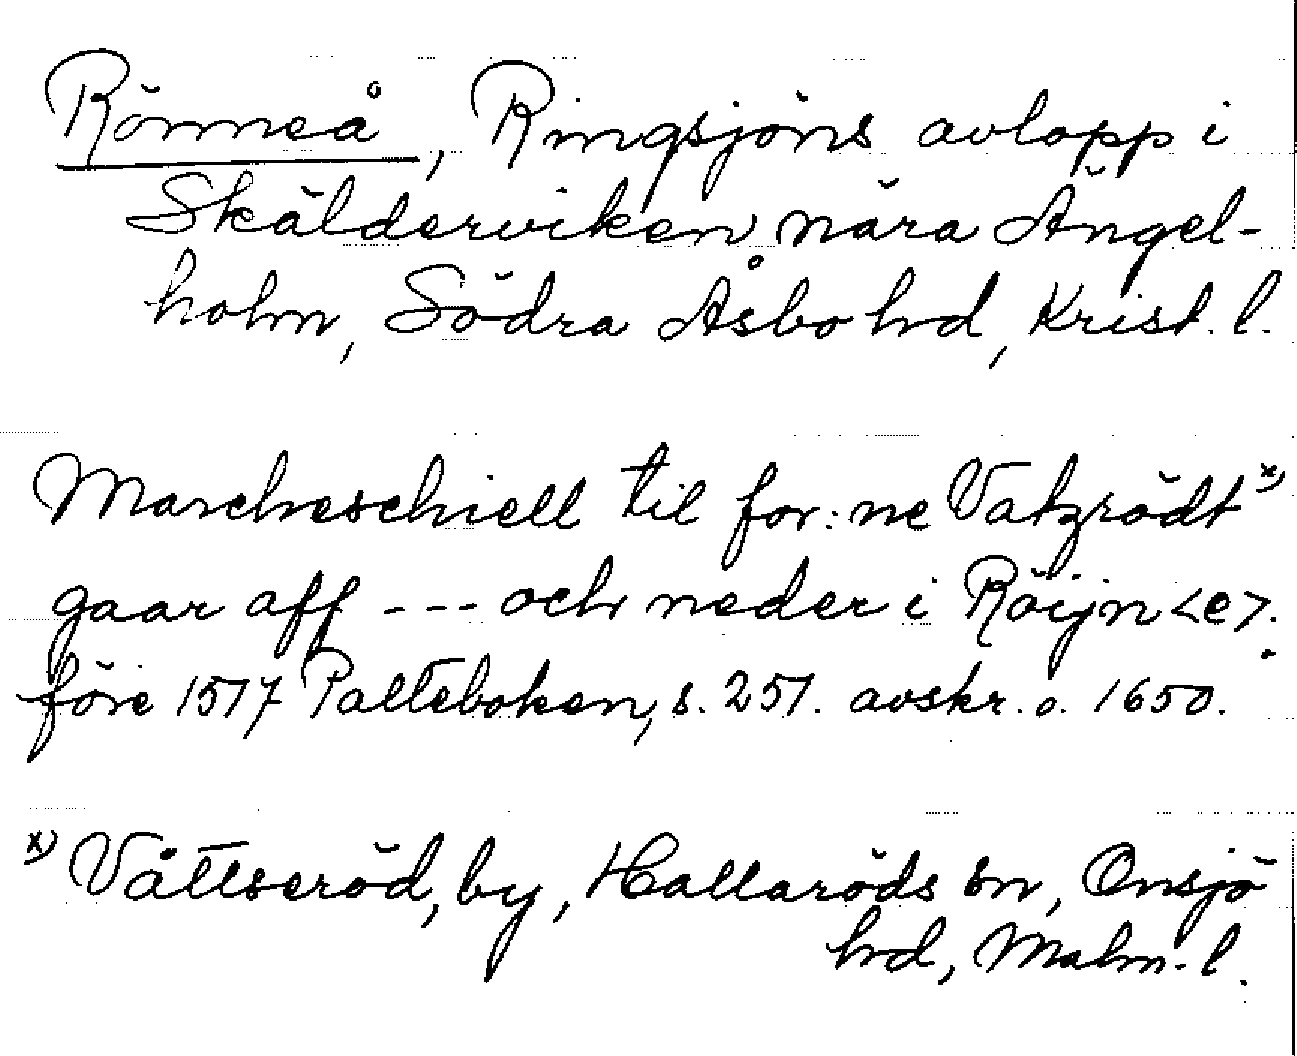 Rönneå, Ringsjöns avlopp i
Skälderviken nära Ängel-
holm, Södra Åsbo hrd, Krist. l.
Marcheschiell til for:ne Vatzrödt x)
gaar aff --- och neder i Röijn<e>.
före 1517 Palteboken, s. 251. avskr. o. 1650.
x) Våttseröd, by, Hallaröds sn, Onsjö
hrd, Malm. l.